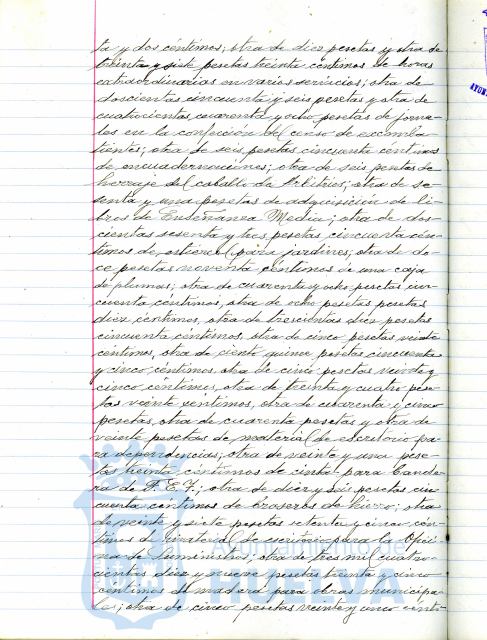 ta y dos céntimos; otra de diez pesetas y otra de
treinta y siete pesetas treinta céntimos de horas
extraordinarias en varios servicios; otra de
doscientas cincuenta y seis pesetas y otra de
cuatrocientas cuarenta y ocho pesetas de jorna-
les en la confección del censo de excomba-
tientes; otra de seis pesetas cincuenta céntimos
de encuadernaciones; otra de seis pesetas de
herraje del caballo de Arbitrios; otra de se-
senta y una pesetas de adquisición de li-
bros de Enseñanza Media; otra de dos-
cientas sesenta y tres pesetas, cincuenta cén-
timos de estiércol para jardines; otra de do-
ce pesetas noventa céntimos de una caja
de plumas; otra de cuarenta y ocho pesetas cin-
cuenta céntimos, otra de ocho pesetas pesetas
diez céntimos, otra de trescientas diez pesetas
cincuenta céntimos, otra de cinco pesetas veinte
céntimos, otra de ciento quince pesetas cincuenta
y cinco céntimos otra de cinco pesetas veinte y
cinco céntimos, otra de treinta y cuatro pese-
tas veinte céntimos, otra de cuarenta y cinco
pesetas, otra de cuarenta pesetas y otra de
veinte pesetas de material de escritorio pa-
ra dependencias; otra de veinte y una pese-
tas treinta céntimos de cinta para bande-
ra de F.E.T.; otra de diez y seis pesetas cin-
cuenta céntimos de braseros de hierro; otra
de veinte y siete pesetas setenta y cinco cén-
timos de material de escritorio para la Ofici-
na de Suministros; otra de tres mil cuatro-
cientas diez y nueve pesetas treinta y cinco
céntimos de madera para obras municipa-
les; otra de cinco pesetas veinte y cinco cénti-
Ayuntamiento de
HUELVA